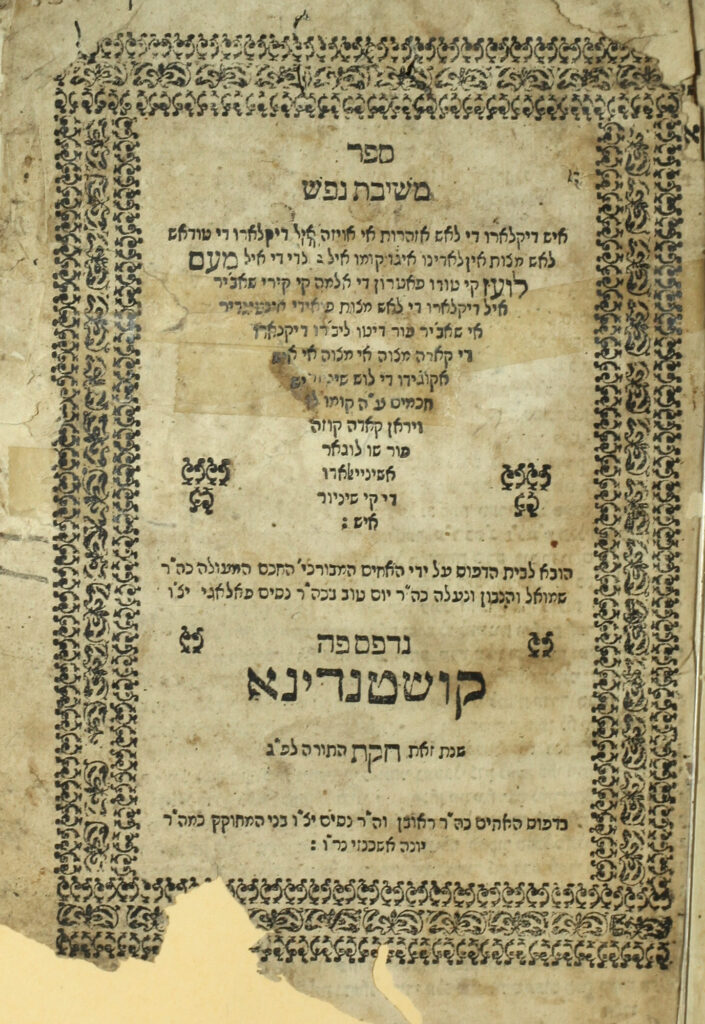 ספר
משיבת נפש
איש דיקלארו די לאש אזהרות אי אויזה אל דיקלארו די טודאש
לאש מצות אין לאדינו איגו קומו איל די די איל מעם
לועז קי טודו פאטרון די אלמה קי קירי שאביר
איל דיקלארו די לאש מצות
אי שאביר פור דיטו ליברו דיקלארו
די קארה מצוה אי מצוה אי
אקוגידו די לוש
חכמים ע"ה קומו לו
ויראן קאדה קוזה
פור שו לוגאר
אשינייאלארו
די קי שיניור
איש :
הובא לבית הדפוס על ידי האחים המבורכי' החכם המעולה כה"ר
שמואל והנבון ונעלה כה"ר יום טוב בכה"ר נסים פאלאגי יצ"ו
נדפס פה
קושטנדינא
שנת זאת חקת התורה לפ"ג
בדפוס האחים כה"ר ראובן וה"ר נסים יצ"ו בני המחוקק כמה"ר
יונה אשכנזי נר"ו :